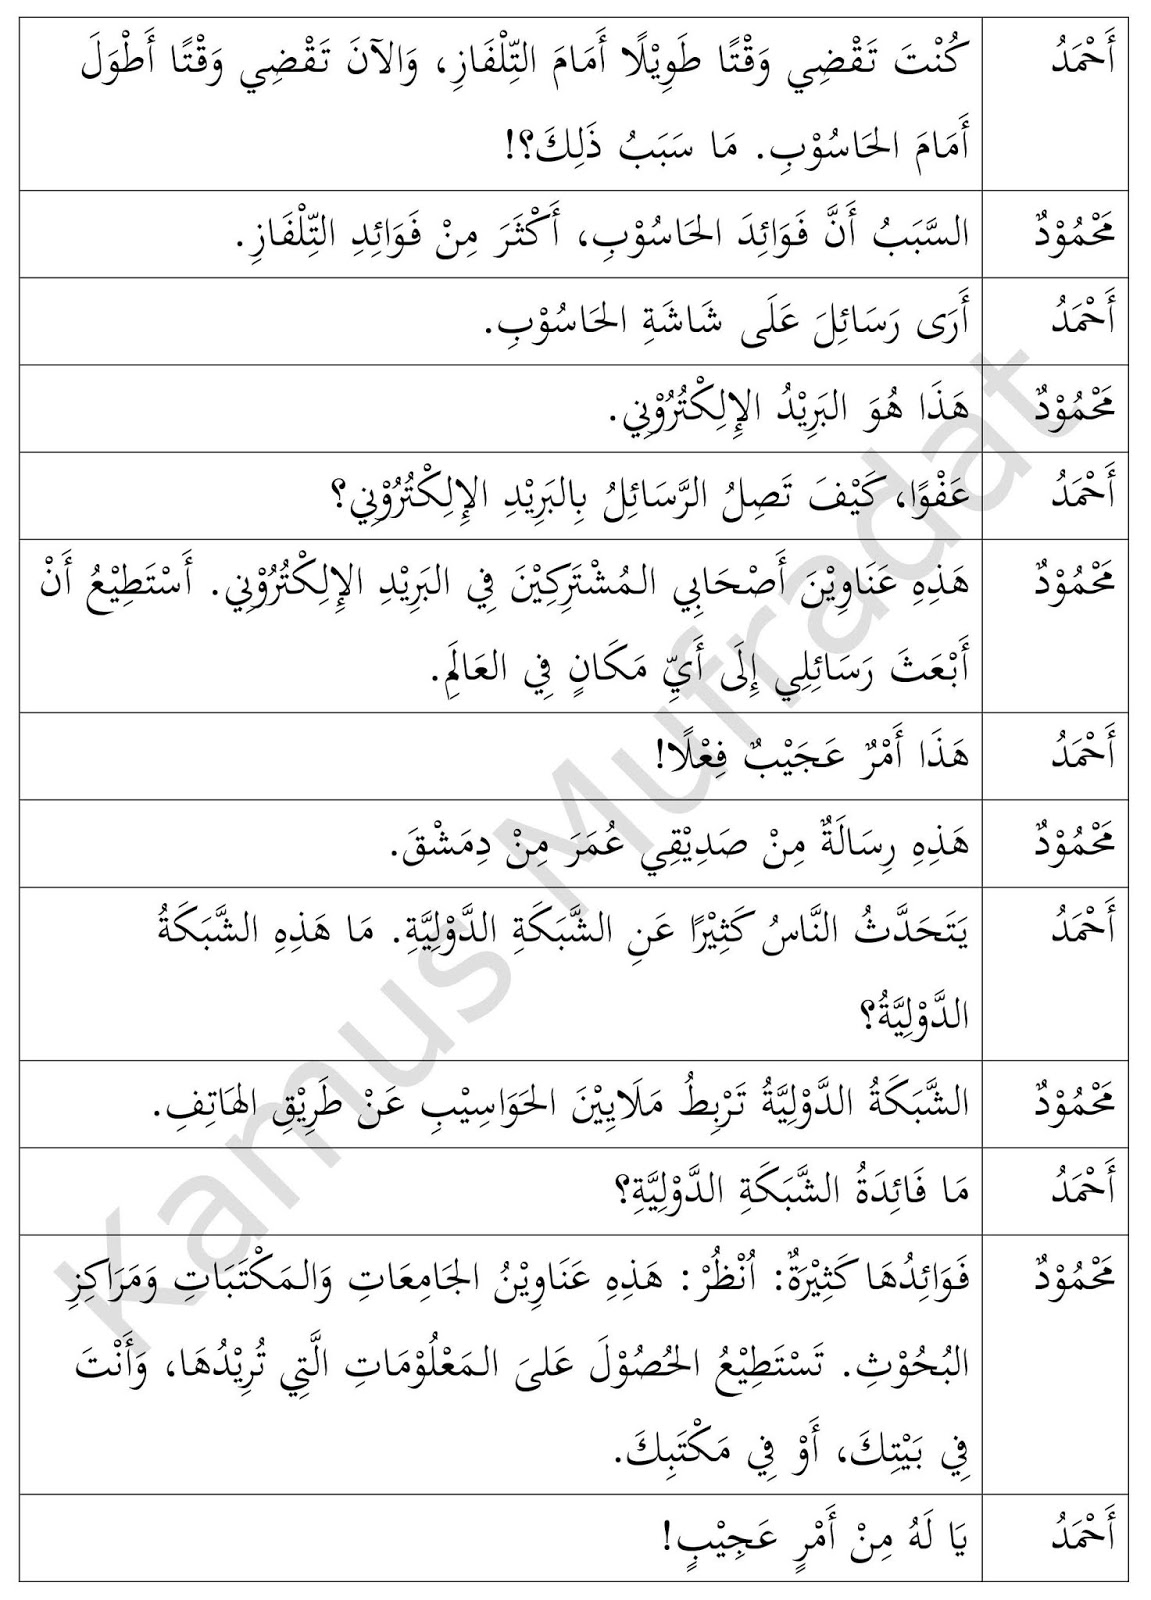 أَحْمَدُ كُنْتَ تَقْضِي وَقْتًا طَوِيْلًا أَمَامَ التِّلْفَازِ، وَالآنَ تَقْضِي وَقْتًا أَطْوَلَ
أَمَامَ الحَاسُوْبِ. مَا سَبَبُ ذَلِكَ؟!
مَحْمُوْدٌ السَّبَبُ أَنَّ فَوَائِدَ الحَاسُوْبِ، أَكْثَرَ مِنْ فَوَائِدِ التِّلْفَازِ.
أَحْمَدُ أَرَى رَسَائِلَ عَلَى شَاشَةِ الحَاسُوْبِ.
مَحْمُوْدٌ هَذَا هُوَ البَرِيْدُ الإِلِكْتُرُوْنِي.
أَحْمَدُ عَفْوًا، كَيْفَ تَصِلُ الرَّسَائِلُ بِالبَرِيْدِ الإِلِكْتُرُوْنِي؟
مَحْمُوْدٌ هَذِهِ عَنَاوِيْنَ أَصْحَابِي المُشْتَرِكِيْنَ فِي البَرِيْدِ الإِلِكْتُرُوْنِي. أَسْتَطِيْعُ أَنْ
أَبْعَثَ رَسَائِلِي إِلَى أَيِّ مَكَانٍ فِي العَالَمِ.
أَحْمَدُ هَذَا أَمْرٌ عَجَيْبٌ فِعْلًا!
مَحْمُوْدٌ هَذِهِ رِسَالَةٌ مِنْ صَدِيْقِي عُمَرَ مِنْ دِمَشْقَ.
أَحْمَدُ يَتَحَدَّثُ النَّاسُ كَثِيْرًا عَنِ الشَّبَكَةِ الدَّوْلِيَّةِ. مَا هَذِهِ الشَّبَكَةُ
الدَّوْلِيَّةُ؟
مَحْمُوْدٌ الشَّبَكَةُ الدَّوْلِيَّةُ تَرْبِطُ مَلَايِيْنَ الحَوَاسِيْبِ عَنْ طَرِيْقِ الهَاتِفِ.
أَحْمَدُ مَا فَائِدَةُ الشَّبَكَةِ الدَّوْلِيَّةِ؟
مَحْمُوْدٌ فَوَائِدُهَا كَثِيْرَةٌ: اُنْظُرْ: هَذِهِ عَنَاوِيْنُ الجَامِعَاتِ وَالمَكْتَبَاتِ وَمَرَاكِزِ
البُحُوْثِ. تَسْتَطِيْعُ الحُصُوْلَ عَلىَ المَعْلُوْمَاتِ الَّتِي تُرِيْدُهَا، وَأَنْتَ
فِي بَيْتِكَ، أَوْ فِي مَكْتَبِكَ.
أَحْمَدُ يَا لَهُ مِنْ أَمْرٍ عَجِيْبٍ!
Kamus Mufradat